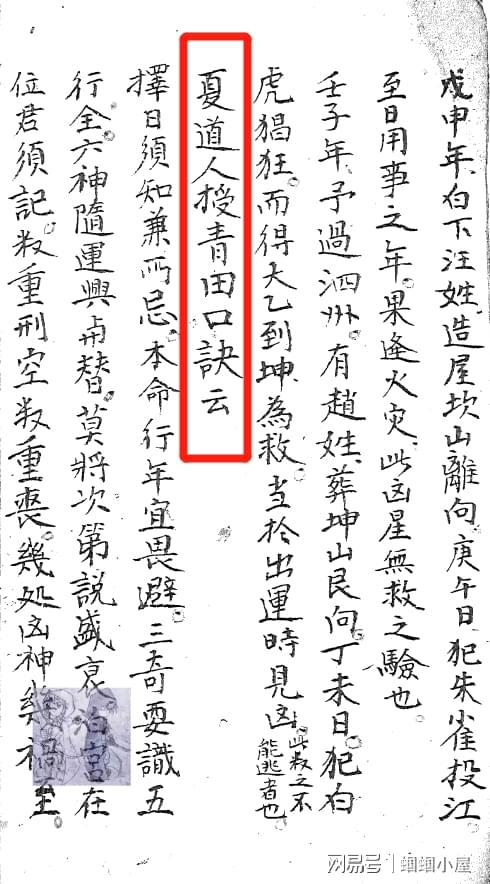 戊申年白下汪姓造屋坎山離向庚午日犯朱雀投江
至日用事之年。果逢火灾此凶星無救之驗也
壬子年予過泗州。有趙姓葬坤山艮向。丁未日。犯白
虎猖狂。而得太乙到坤為救。当於出運時見凶。此救之不能逃者也
夏道人授青田口訣云
擇日須知兼所忌。本命行年宜畏避。三奇要識五
行全。六神隨運興与替。莫將次第說盛衰 宮在
位君須記。数重刑空数重喪。幾处凶神
網易号 | 蝈蝈小屋